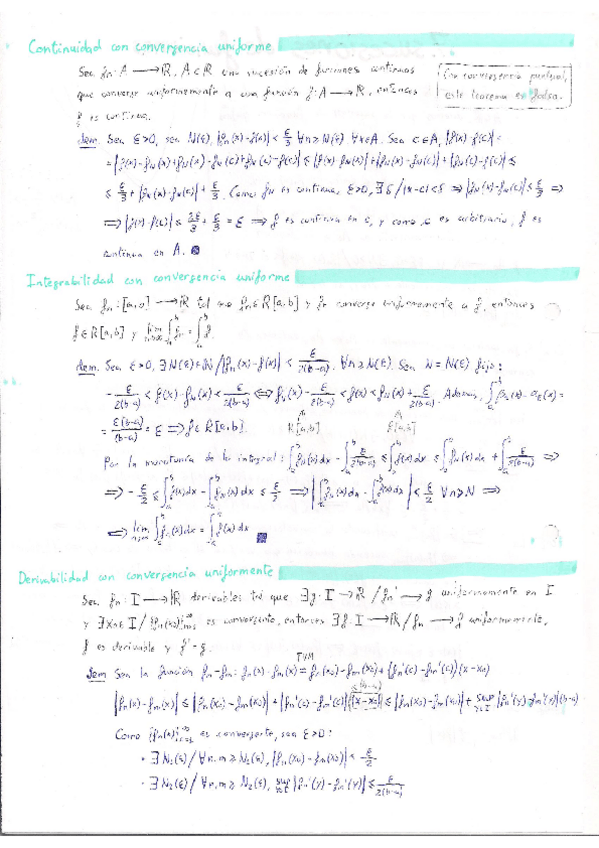 Continuidad con convergencia uniforme
Sea fn: A → R, A ⊂ R una sucesión de funciones continuas
que converge uniformemente a una función f: A → R, entonces
f es continua.
Con convergencia puntual,
este teorema es falso.
dem. Sea ε>0, sea N(ε), |fn(x)-f(x)| < ε/3 ∀n≥N(ε) ∀x∈A. Sea c∈A, |f(x)-f(c)| =
= |f(x)-fN(x)+fN(x)-fN(c)+fN(c)-f(c)| ≤ |f(x)-fN(x)|+|fN(x)-fN(c)|+|fN(c)-f(c)| ≤
≤ ε/3 + |fN(x)-fN(c)| + ε/3. Como fN es continua, ε>0, ∃δ / |x-c|<δ ⇒ |fN(x)-fN(c)| ≤ ε/3 ⇒
⇒ |f(x)-f(c)| ≤ 2ε/3 + ε/3 = ε ⇒ f es continua en c, y como c es arbitrario, f es
continua en A.
Integrabilidad con convergencia uniforme
Sea fn: [a,b] → R tal que fn∈R[a,b] y fn converge uniformemente a f, entonces
f∈R[a,b] y lim n→∞ ∫ fn = ∫ f.
dem. Sea ε>0, ∃N(ε)∈N / |fn(x)-f(x)| < ε/2(b-a), ∀n≥N(ε). Sea N=N(ε) fijo:
-ε/2(b-a) < f(x)-fN(x) < ε/2(b-a) ⇔ fN(x)-ε/2(b-a) < f(x) < fN(x)+ε/2(b-a). Además,
= ε(b-a)/(b-a) = ε ⇒ f∈R[a,b]. R[a,b] R[a,b]
Por la monotonía de la integral: ∫ fN(x)dx - ∫ ε/2(b-a) ≤ ∫ f(x)dx ≤ ∫ fN(x)dx + ∫ ε/2(b-a) ⇒
⇒ -ε/2 ≤ ∫ f(x)dx - ∫ fN(x)dx ≤ ε/2 ⇒ |∫ fn(x)dx - ∫ f(x)dx| < ε/2 ∀n≥N ⇒
⇒ lim n→∞ ∫ fn(x)dx = ∫ f(x)dx
Derivabilidad con convergencia uniformente
Sea fn: I → R derivables tal que ∃g: I → R / fn' → g uniformemente en I
y ∃x0∈I / es convergente, entonces ∃f: I → R / fn → f uniformemente,
f es derivable y f'=g.
TVM
dem Sea la función fn-fm: fn(x)-fm(x) = fn(x0)-fm(x0)+(fn'(c)-fm'(c))(x-x0)
≤(b-a)
|fn(x)-fm(x)| ≤ |fn(x0)-fm(x0)| + |fn'(c)-fm'(c)||x-x0| ≤ |fn(x0)-fm(x0)| + sup |fn'(y)-fm'(y)|(b-a)
Como es convergente, sea ε>0:
· ∃N1(ε) / ∀n,m≥N1(ε), |fn(x0)-fm(x0)| < ε/2
· ∃N2(ε) / ∀n,m≥N2(ε), sup |fn'(y)-fm'(y)| ≤ ε/2(b-a)